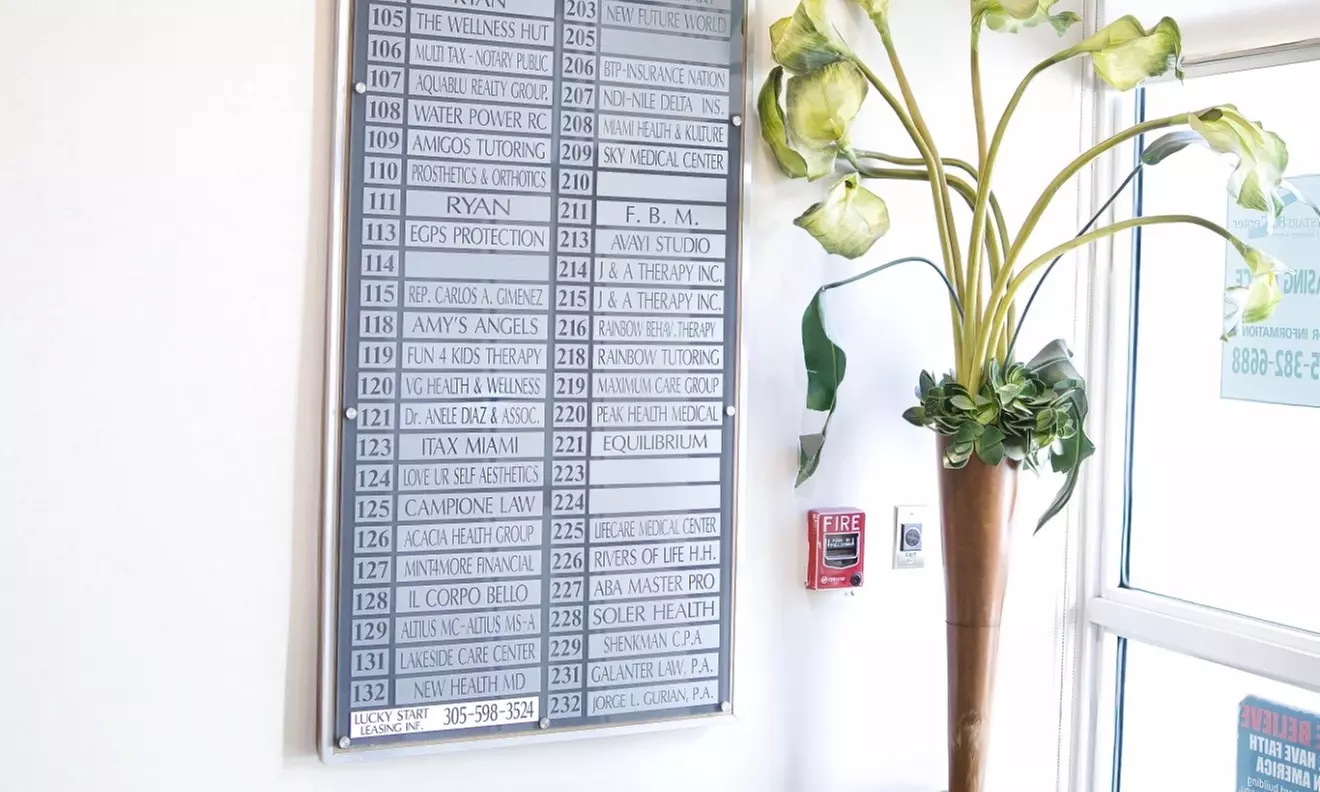 RYAN
105 THE WELLNESS HUT
106 MULTI TAX - NOTARY PUBLIC
107 AQUABLU REALTY GROUP.
108 WATER POWER RC
109 AMIGOS TUTORING
110 PROSTHETICS & ORTHOTICS
111 RYAN
113 EGPS PROTECTION
114
115 REP. CARLOS A. GIMENEZ
118 AMY'S ANGELS
119 FUN 4 KIDS THERAPY
120 VG HEALTH & WELLNESS
121 Dr. ANELE DIAZ & ASSOC.
123 ITAX MIAMI
124 LOVE UR SELF AESTHETICS
125 CAMPIONE LAW
126 ACACIA HEALTH GROUP
127 MINT4MORE FINANCIAL
128 IL CORPO BELLO
129 ALTIUS MC-ALTIUS MS-A
131 LAKESIDE CARE CENTER
132 NEW HEALTH MD
LUCKY START
LEASING INF. 305-598-3524
203 NEW FUTURE WORLD
205
206 BTP-INSURANCE NATION
207 NDI-NILE DELTA INS.
208 MIAMI HEALTH & KULTURE
209 SKY MEDICAL CENTER
210
211 F. B. M.
213 AVAYI STUDIO
214 J & A THERAPY INC.
215 J & A THERAPY INC.
216 RAINBOW BEHAV. THERAPY
218 RAINBOW TUTORING
219 MAXIMUM CARE GROUP
220 PEAK HEALTH MEDICAL
221 EQUILIBRIUM
223
224
225 LIFECARE MEDICAL CENTER
226 RIVERS OF LIFE H.H.
227 ABA MASTER PRO
228 SOLER HEALTH
229 SHENKMAN C.P.A
231 GALANTER LAW, P.A.
232 JORGE L. GURIAN, P.A.
FIRE
EXIT
Center
FOR INFORMATION
5-382-6688
BELIEVE
HAVE FAITH
IN AMERICA
building